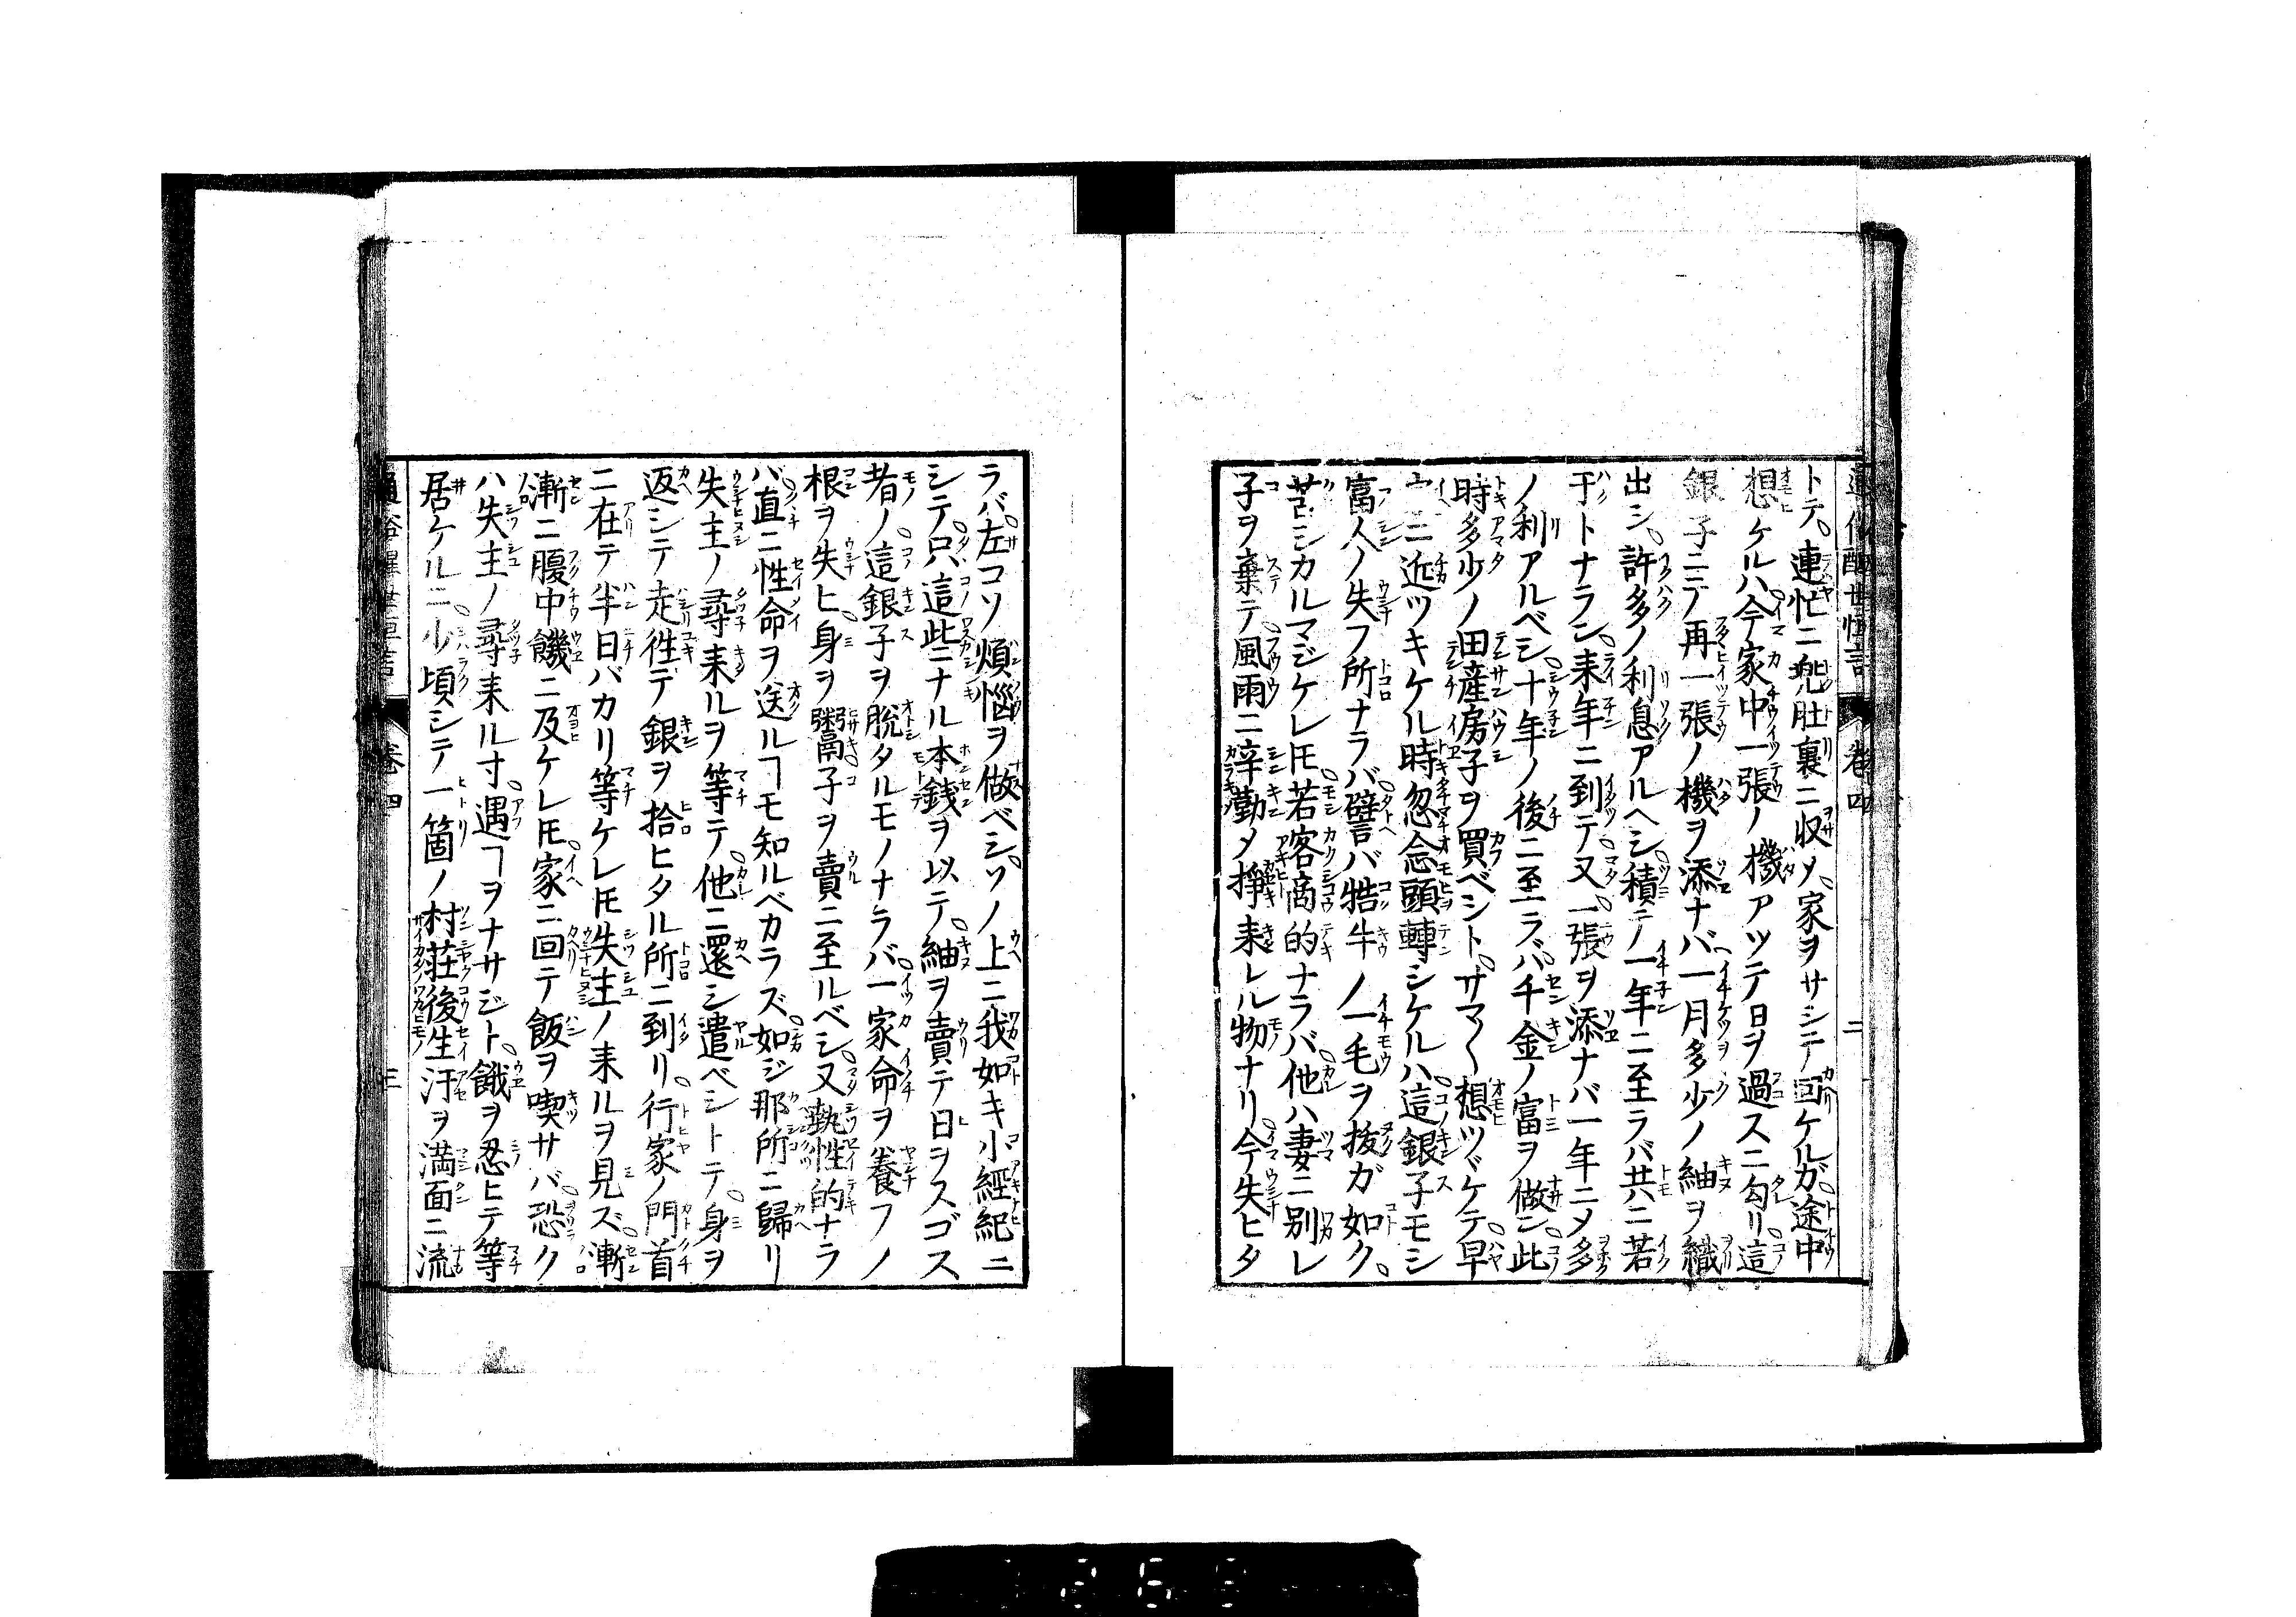 通俗醒世恒言 卷四 二
トテ。連忙ニ兠肚裏ニ収メ。家ヲサシテ回ケルガ。途中
想ケルハ。今家中一張ノ機アツテ日ヲ過スニ勾リ。這
銀子ニテ再一張ノ機ヲ添ナバ一月多少ノ紬ヲ織
出シ。許多ノ利息アルヘシ。積テ一年ニ至ラバ共ニ若
干トナラン。来年ニ到テ。又一張ヲ添ナバ一年ニメ多
ノ利アルベシ。十年ノ後ニ至ラバ千金ノ富ヲ做ン。此
時多少ノ田産房子ヲ買ベシト。サマ〱想ツヾケテ。早
ニ近ツキケル時忽念頭轉シケルハ。這銀子モシ
富人ノ失フ所ナラバ。譬バ牯牛ノ一毛ヲ抜ガ如ク。
苦シカルマジケレ𪜈。若客商的ナラバ。他ハ妻ニ別レ
子ヲ棄テ。風雨ニ辛勤メ掙来レル物ナリ。今失ヒタ
ラバ。左コソ煩惱ヲ做ベシ。ソノ上ニ我如キ小經紀ニ
シテ。只這些ニナル本銭ヲ以テ。紬ヲ賣テ日ヲスゴス
者ノ。這銀子ヲ脱タルモノナラバ。一家命ヲ養フノ
根ヲ失ヒ。身ヲ鬻子ヲ賣ニ至ルベシ。又執性的ナラ
バ。直ニ性命ヲ送ルヿモ知ルベカラズ。如ジ那所ニ歸リ
失主ノ尋来ルヲ等テ。他ニ還シ遣ベシトテ。身ヲ
返シテ走徃テ銀ヲ拾ヒタル所ニ到リ。行家ノ門首
ニ在テ半日バカリ等ケレ𪜈失主ノ来ルヲ見ズ。漸
漸ニ腹中饑ニ及ケレ𪜈。家ニ回テ飯ヲ喫サバ。恐ク
ハ失主ノ尋来ルニ遇ヿヲナサジト。餓ヲ忍ヒテ等
居ケルニ。少頃シテ一箇ノ村莊後生汗ヲ満面ニ流
通俗醒世恒言 卷四 三